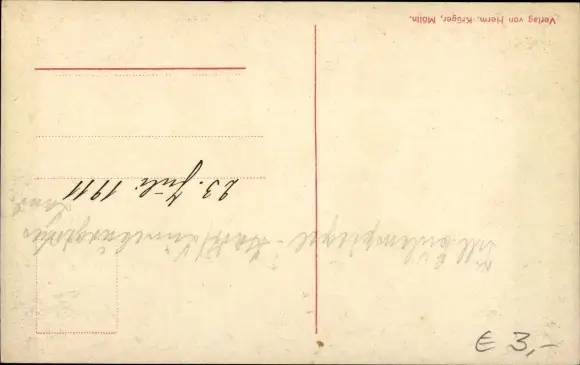 Verlag von Herm. Krüger, Mölln.
23. Juli 1911
Till Eulenspiegel -
€ 3,-